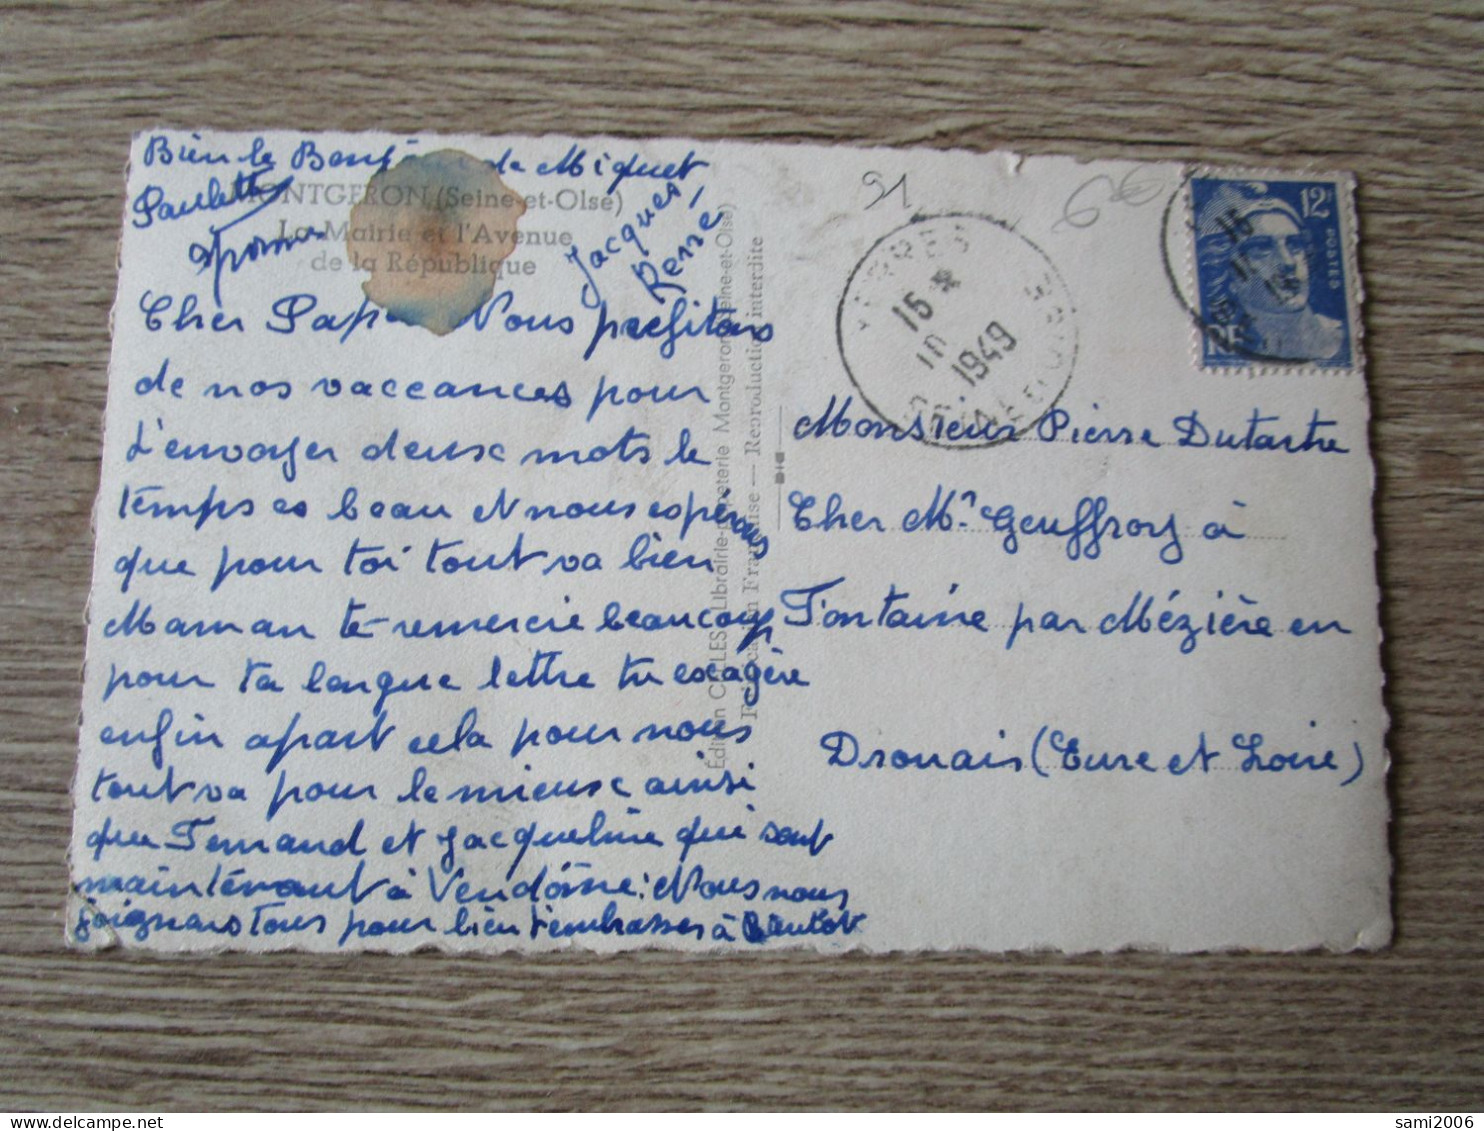 Bien le Bonj de Miquet
Paulette
Jacques
Pierre
MONTGERON (Seine-et-Oise)
La Mairie et l'Avenue
de la République
Cher Papa Nous profitons
de nos vaccances pour
t'envoyer deux mots le
temps es beau et nous espérons
que pour toi tout va bien
Maman te remercie beaucoup
pour ta longue lettre tu exagère
enfin apart cela pour nous
tout va pour le mieux ainsi
que Fernand et Jacqueline qui sont
maintenant à Vendôme: Nous nous
joignons tous pour bien t'embrasser à Bientot
Édition Librairie-papeterie Montgeron (Seine-et-Oise)
Fabrication Française — Reproduction interdite
91
YERRES
15
10
1949
SEINE ET OISE
12
POSTES
RF
Monsieur Pierre Dutartre
Cher Mr Geuffroy à
Fontaine par Mézière en
Drouais (Eure et Loire)
sami2006